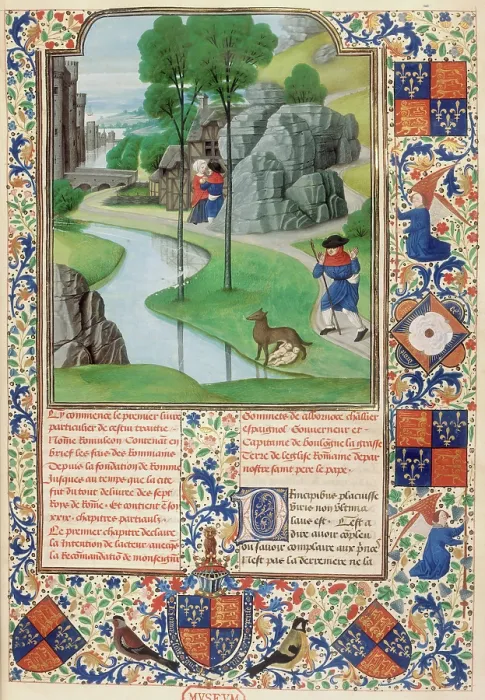 Cy commence le premier livre
particulier de cestui traittie
Nome Romuleon Contenāt en
brief les fais des Rommains
Depuis la fondation de Romme
Jusques au temps que la cite
fut du tout delivre des sept
Roys de Rōme. et contient ē soy
xxix. chapitres partiaulx.
Le premier chapitre declaire
la Intention de lacteur avecqs
la Recomādatiō de monseigneur
Gommets de albornoez challier
espaignol Gouverneur et
Capitaine de boulogne la grasse
Terre de leglise Romaine de par
nostre saint pere le pape.
PRincipibus placuisse
viris non ultima
laus est. Cest a
dire avoir copleu
ou savoir complaire aux p'nces
Nest pas la derreniere ne la
MVSEVM